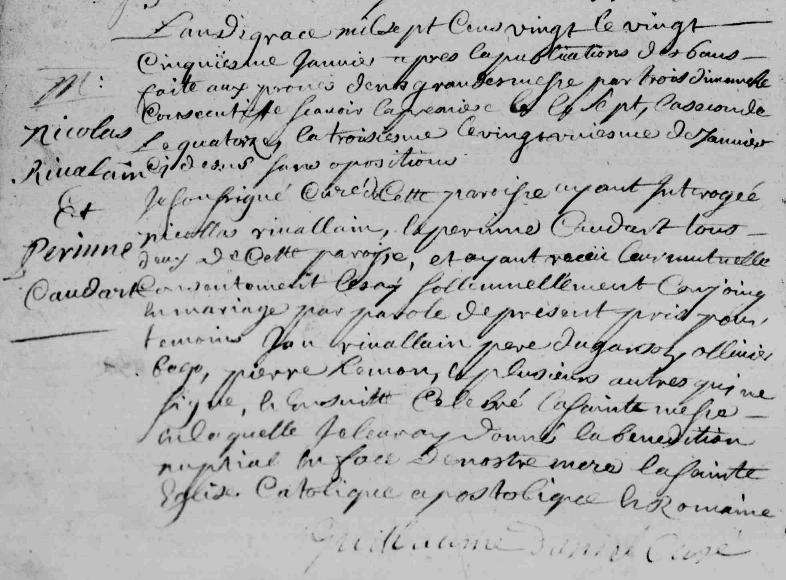 M:
Nicolas
Rivalain
Et
Perinne
Caudart
L'an de grace mil sept Cens vingt le vingt
Cinquiesme Janvier apres la publications des bans
faite aux prones de nos grandes messe par trois dimanche
Consecutif sçavoir la premiere le sept, la seconde
le quatorze, la troisiesme le vingt uniesme de Janvier
Cy desus sans opositions
Je sousigné Curé de Cette paroisse ayant Interogée
nicollas rivallain, le perinne Caudart tous
deux de Cette paroisse, et ayant receu leur mutuelle
Consentement les ay sollennellement Conjoinq
En mariage par parole de present pris pour
temoins Jan rivallain pere du garson, ollivier
pierre Lemon, le plusieurs autres qui ne
signe, le Ensuitte Celebré la sainte messe
en laquelle Je leur ay donné la benediction
nuptial En face De nostre mere la sainte
Eglise Catolique apostolique le Romaine
Guillaume Daniel Curé